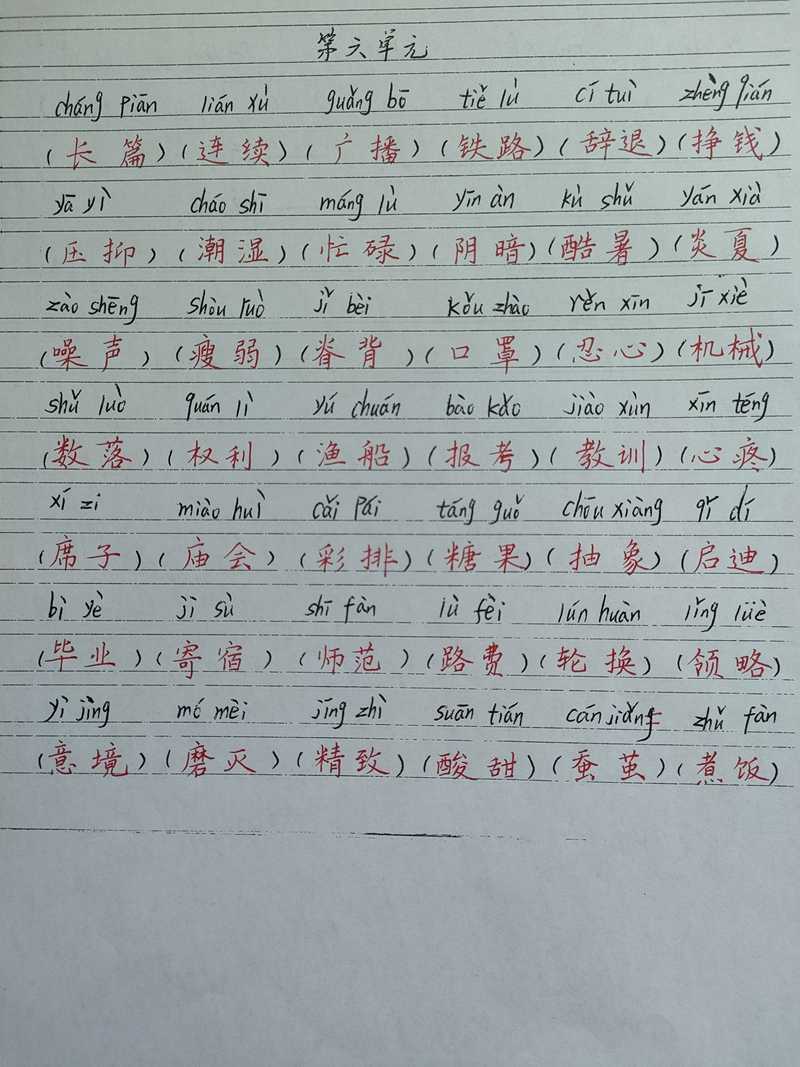 第六单元
cháng piān lián xù guǎng bō tiě lù cí tuì zhèng qián
(长篇)(连续)(广播)(铁路)(辞退)(挣钱)
yā yì cháo shī máng lù yīn àn kù shǔ yán xià
(压抑)(潮湿)(忙碌)(阴暗)(酷暑)(炎夏)
zào shēng shòu ruò jǐ bèi kǒu zhào rěn xīn jī xiè
(噪声)(瘦弱)(脊背)(口罩)(忍心)(机械)
shǔ luò quán lì yú chuán bào kǎo jiào xùn xīn téng
(数落)(权利)(渔船)(报考)(教训)(心疼)
xí zi miào huì cǎi pái táng guǒ chōu xiàng qǐ dí
(席子)(庙会)(彩排)(糖果)(抽象)(启迪)
bì yè jì sù shī fàn lù fèi lún huàn lǐng lüè
(毕业)(寄宿)(师范)(路费)(轮换)(领略)
yì jìng mó mèi jīng zhì suān tián cán jiǎng zhǔ fàn
(意境)(磨灭)(精致)(酸甜)(蚕茧)(煮饭)